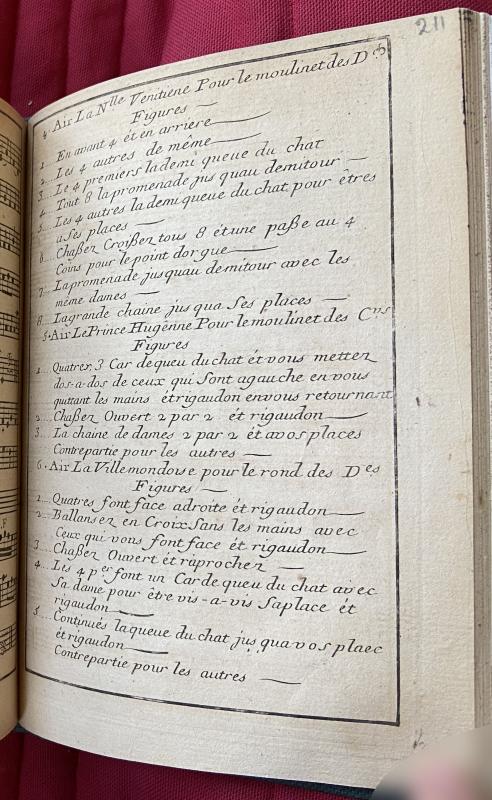 211
4. Air La Nlle Venitiene Pour le moulinet des Des
Figures —
1... En avant 4 ét en arriere —
2... Les 4 autres de même —
3... Le 4 premiers la demi queue du chat
4... Tout 8 la promenade jus quau demitour —
5... Les 4 autres la demi queue du chat pour êtres
a Ses places —
6... Chaßez Croißez tous 8 ét une paße au 4
Coins pour le point dorgue —
7... La promenade jusquau demitour avec les
même dames
8... La grande chaine jus qua Ses places —
5. Air Le Prince Hugénne Pour le moulinet des Crs
Figures
1... Quatrez 3 Car de queu du chat ét vous mettez
dos-a-dos de ceux qui Sont agauche en vous
quittant les mains ét rigaudon en vous retournant
2... Chaßez Ouvert 2 par 2 ét rigaudon —
3... La chaine de dames 2 par 2 ét avos places
Contrepartie pour les autres —
6. Air La Villemondoise pour le rond des Des
Figures —
1... Quatres font face adroite ét rigaudon —
2... Ballansez en Croix Sans les mains avec
Ceux qui vous font face ét rigaudon —
3... Chaßez Ouvert ét raprochez —
4... Les 4 per font un Car de queu du chat avec
Sa dame pour être vis-a-vis Saplace ét
rigaudon —
5... Continués laqueue du chat jus quavos plaec
ét rigaudon —
Contrepartie pour les autres —